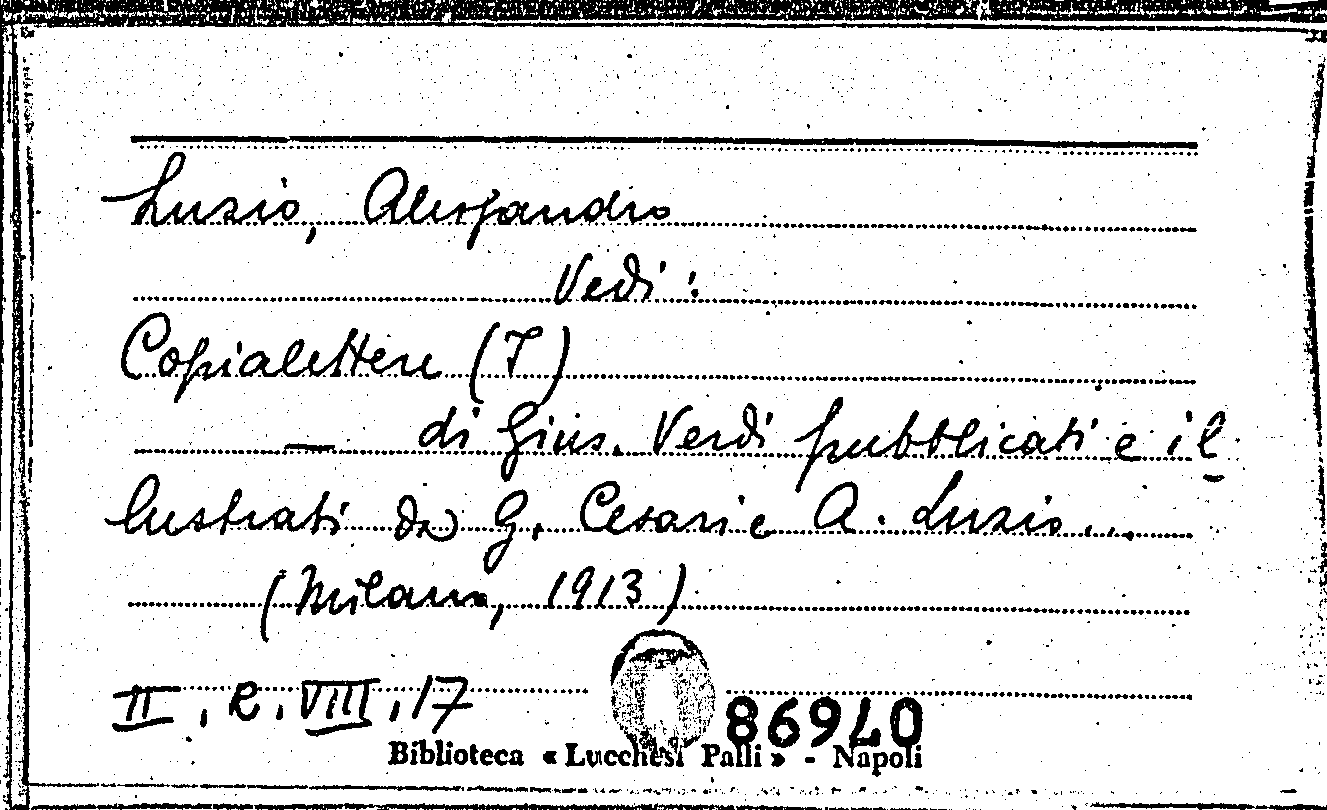 Luzio, Alessandro
Vedi:
Copialettere (I)
— di Gius. Verdi pubblicati e il-
lustrati da G. Cesari e A. Luzio...
(Milano, 1913)
II. R. VIII. 17
86940
Biblioteca « Lucchesi Palli » - Napoli